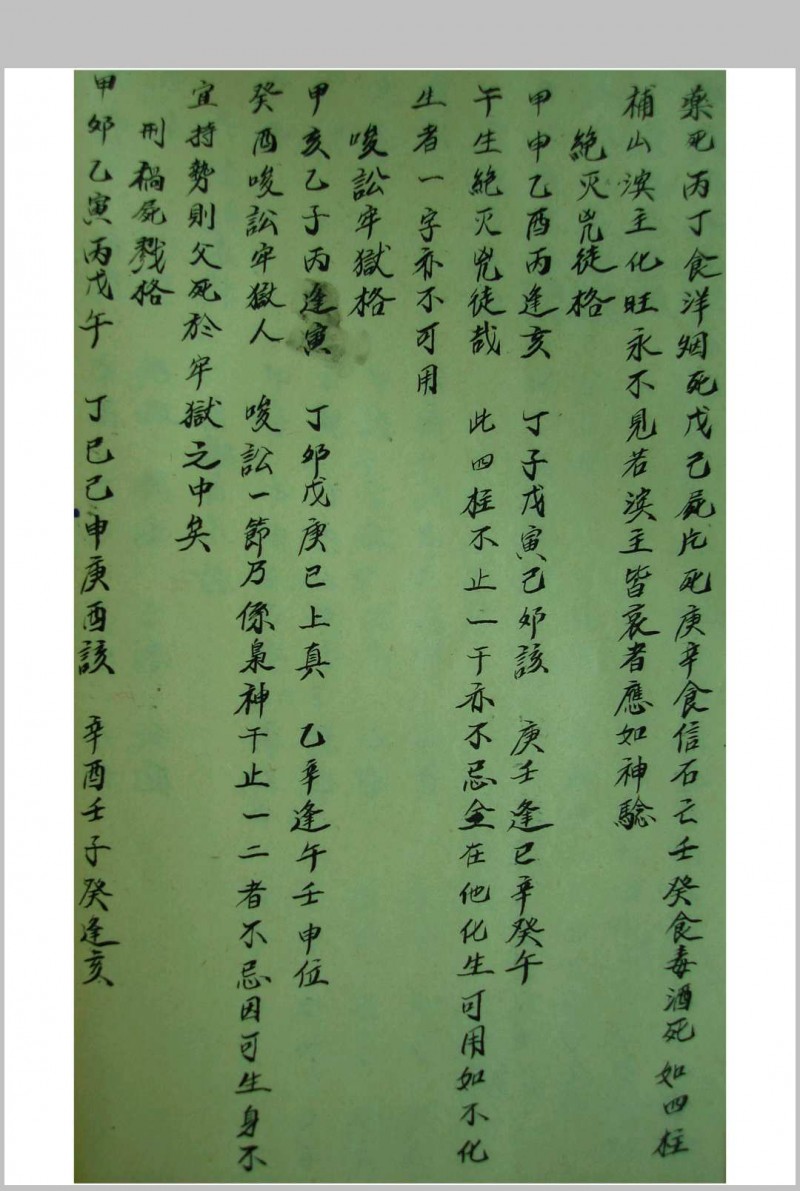 藥死丙丁食洋烟死戊己屍片死庚辛食信石亡壬癸食毒酒死如四柱
補山浜主化旺永不見若浜主皆衰者應如神驗
絕灭兇徒格
甲申乙酉丙逢亥 丁子戊寅己卯該 庚壬逢巳辛癸午
午生絕灭兇徒哉 此四柱不止一干亦不忌全在他化生可用如不化
生者一字亦不可用
唆訟牢獄格
甲亥乙子丙逢寅 丁卯戊庚巳上真 乙辛逢午壬申位
癸酉唆訟牢獄人 唆訟一節乃係梟神干止一二者不忌因可生身不
宜持勢則父死於牢獄之中矣
刑禍屍戮格
甲卯乙寅丙戊午 丁巳己申庚酉該 辛酉壬子癸逢亥